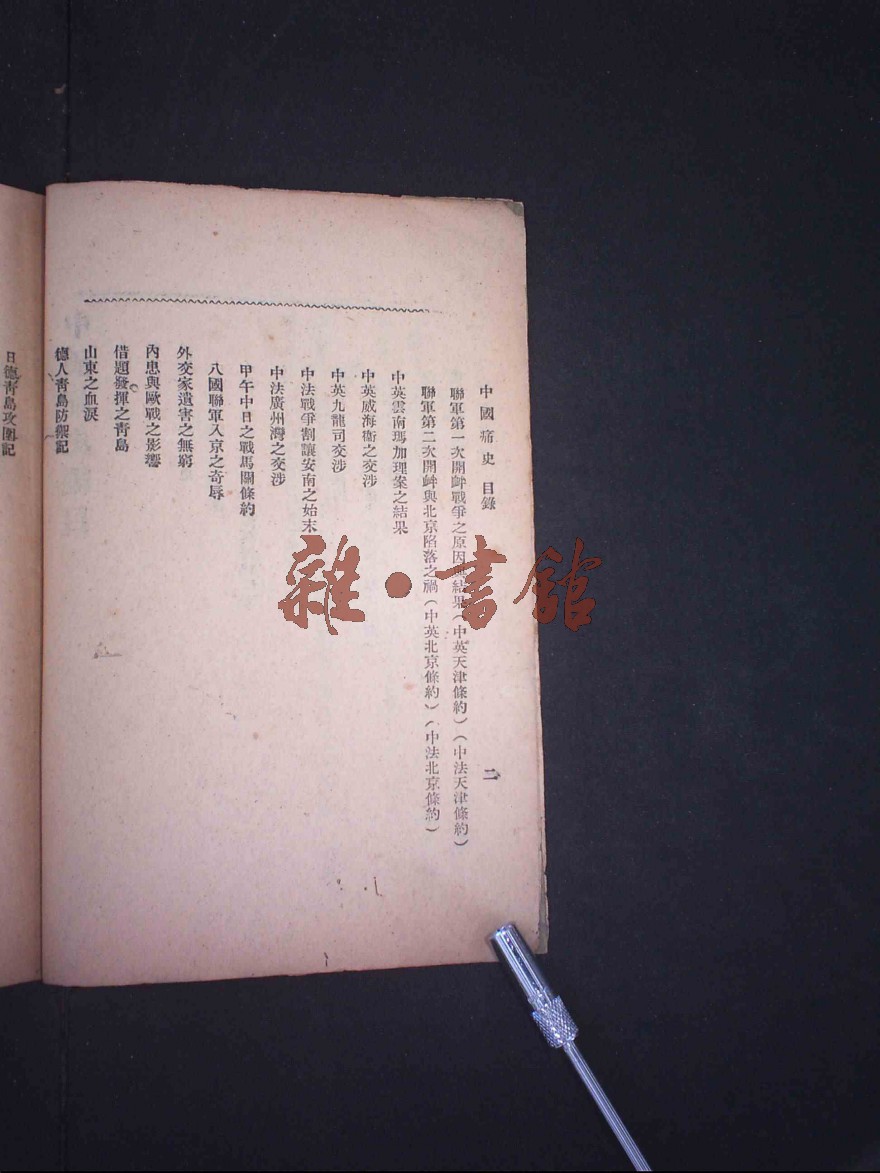 中國痛史 目錄 二
聯軍第一次開衅戰爭之原因與結果(中英天津條約)(中法天津條約)
聯軍第二次開衅與北京陷落之禍(中英北京條約)(中法北京條約)
中英雲南瑪加理案之結果
中英威海衞之交涉
中英九龍司交涉
中法戰爭割讓安南之始末
中法廣州灣之交涉
甲午中日之戰馬關條約
八國聯軍入京之奇辱
外交家遺害之無窮
內患與歐戰之影響
借題發揮之青島
山東之血淚
德人青島防禦記
日德青島攻圍記
雜·書館